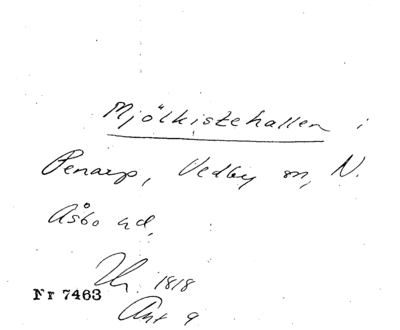 Mjölkistehallen i
Penarp, Vedby sn, N.
Åsbo hd.
1818
Nr 7463
Ant 9